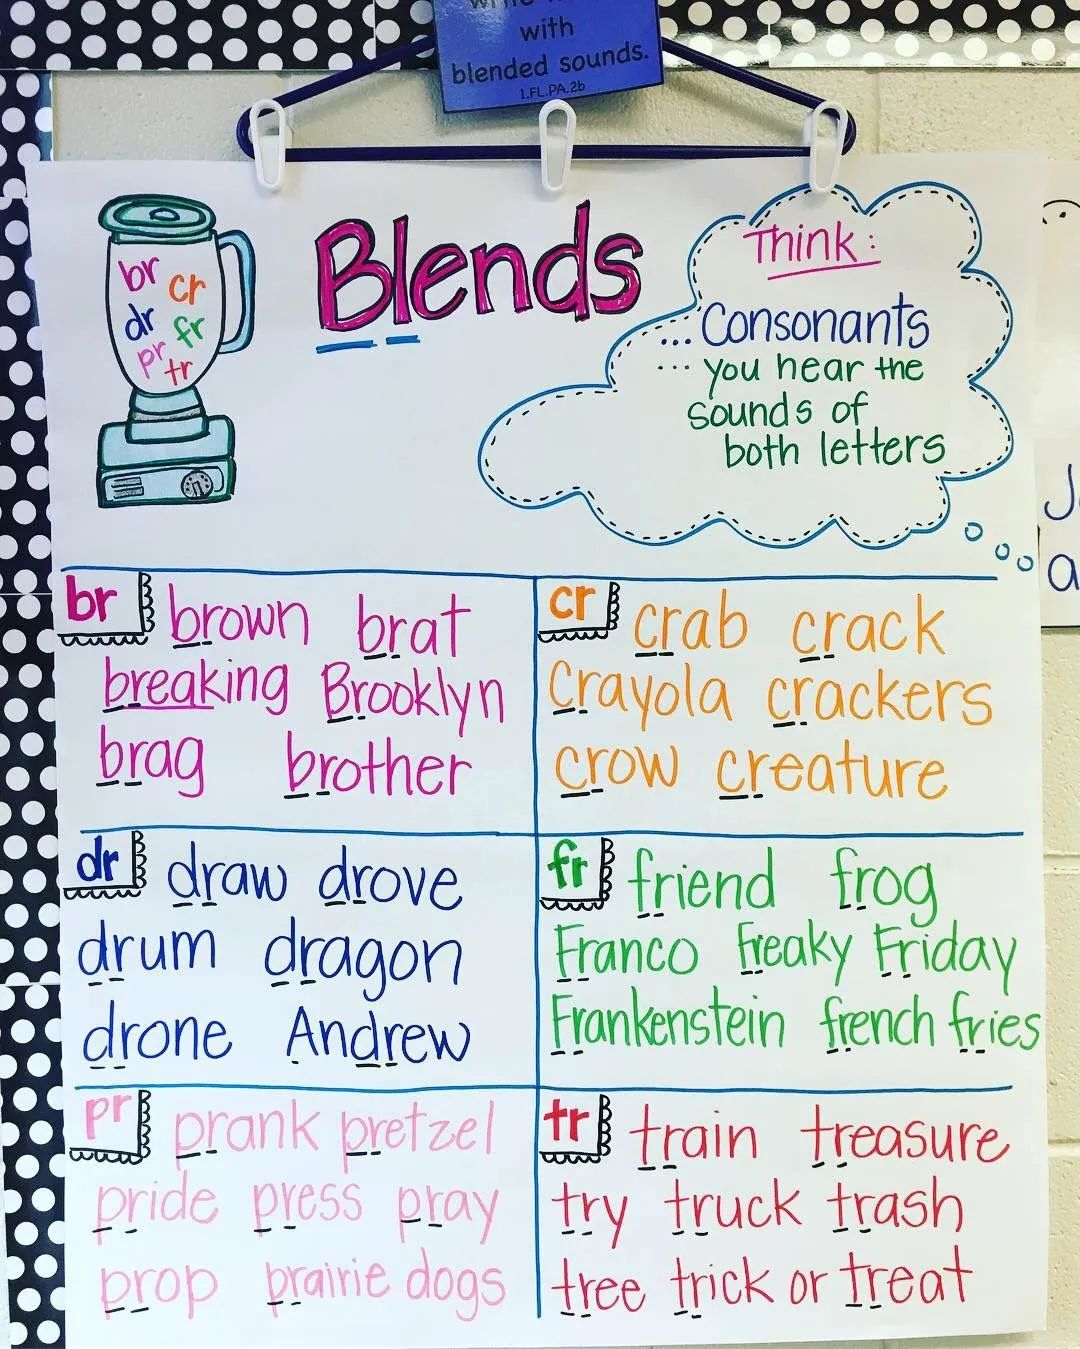 with
blended sounds.
1.FL.PA.2b
br
cr
dr
fr
pr
tr
Blends
Think:
... Consonants
... you hear the
sounds of
both letters
br
brown brat
breaking Brooklyn
brag brother
cr
crab crack
Crayola crackers
crow creature
dr
draw drove
drum dragon
drone Andrew
fr
friend frog
Franco freaky Friday
Frankenstein french fries
pr
prank pretzel
pride press pray
prop prairie dogs
tr
train treasure
try truck trash
tree trick or treat